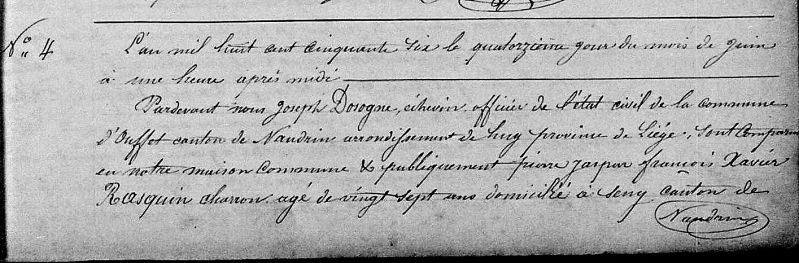 N° 4
L'an mil huit cent cinquante six le quatorzième jour du mois de juin
à une heure après midi
Pardevant nous Joseph Dosogne, échevin, officier de l'état civil de la commune
d'Ouffet canton de Nandrin arrondissement de huy province de Liége, sont comparus
en notre maison Commune & publiquement pierre jaspar françois Xavier
Rasquin charron agé de vingt sept ans domicilié à seny canton de
Nandrin